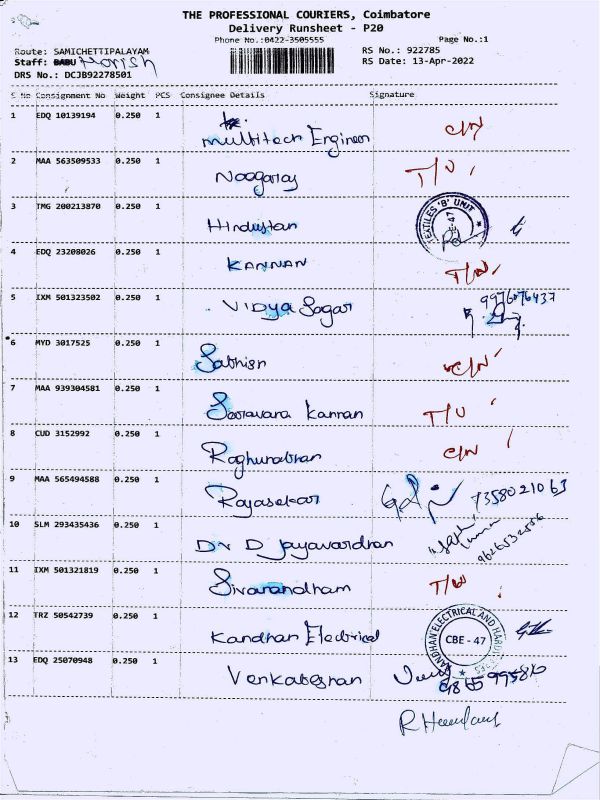 THE PROFESSIONAL COURIERS, Coimbatore
Delivery Runsheet - P20
Phone No.:0422-3505555
Page No.:1
Route: SAMICHETTIPALAYAM
RS No.: 922785
Staff: BABU Harish
RS Date: 13-Apr-2022
DRS No.: DCJB92278501
S No Consignment No Weight PCS Consignee Details Signature
1 EDQ 10139194 0.250 1 Multitech Engineer C/N
2 MAA 563509533 0.250 1 T/U
3 TMG 200213870 0.250 1 Hindustan TEXTILES 'B' UNIT
4 EDQ 23208026 0.250 1 KANNAN
5 IXM 501323502 0.250 1 VIDYA Sagar 9976076437
6 MYD 3017525 0.250 1 C/N
7 MAA 939304581 0.250 1 Kannan T/U
8 CUD 3152992 0.250 1 C/N
9 MAA 565494588 0.250 1 Rajasekar 7358021063
10 SLM 293435436 0.250 1 Dr D Jayavardhan
11 IXM 501321819 0.250 1
12 TRZ 50542739 0.250 1 Kandhan Electrical CBE - 47
13 EDQ 25070948 0.250 1